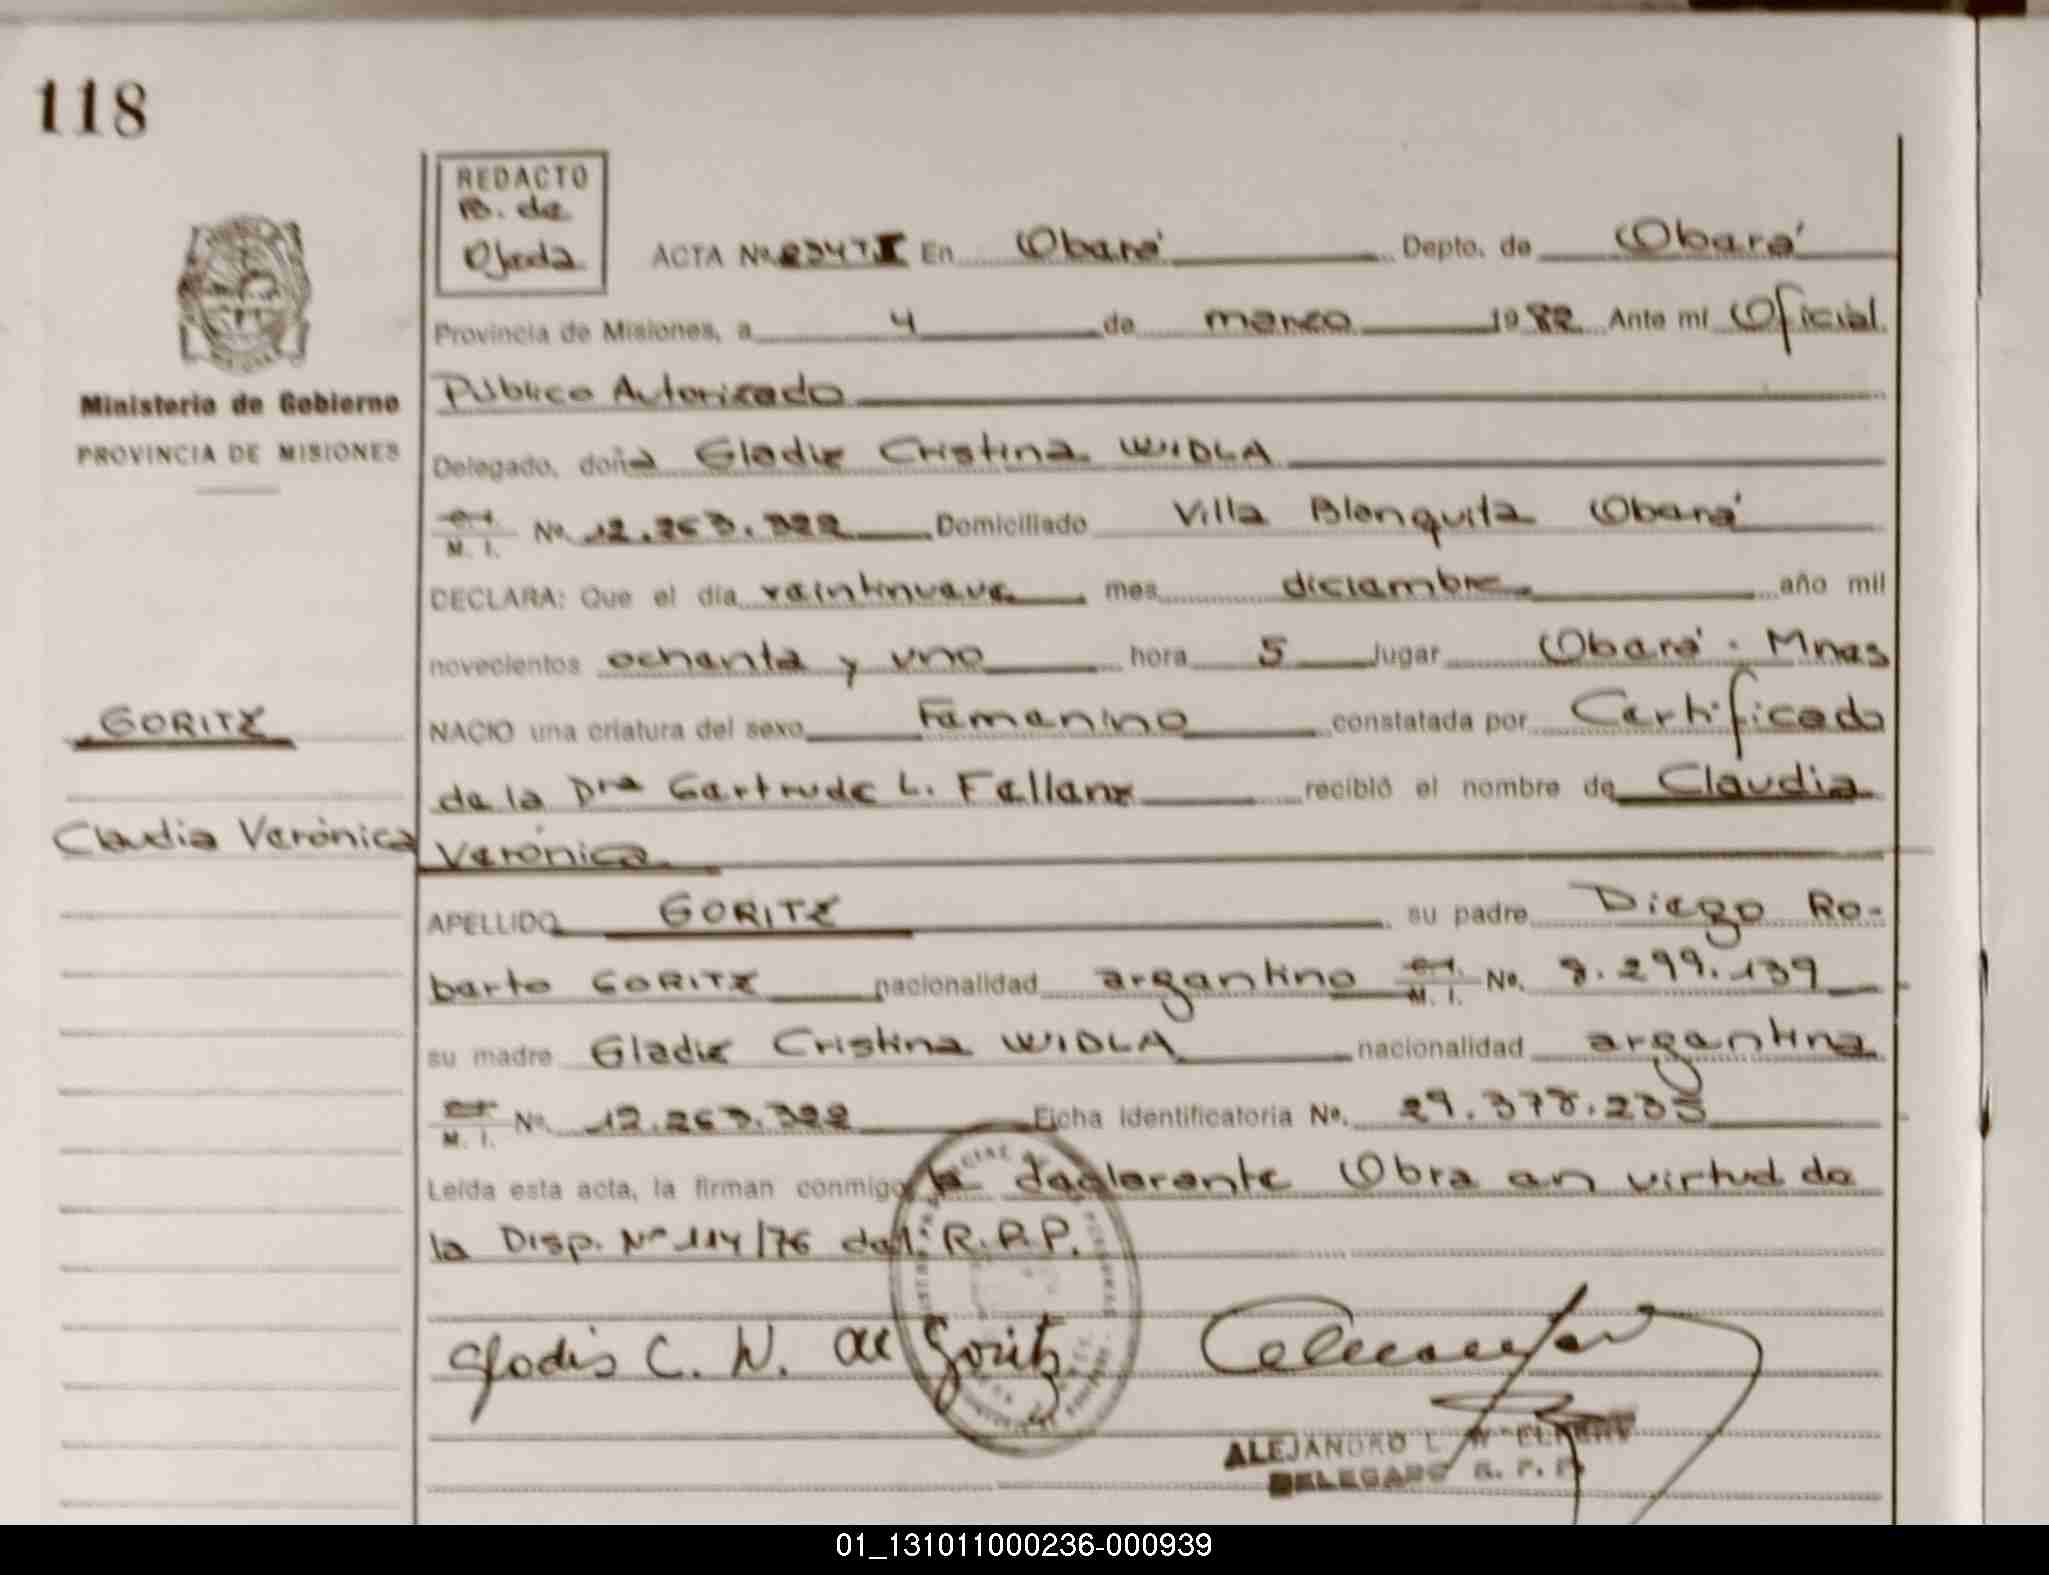 118
REDACTO
B. de
Ojeda
ACTA No. En Oberá Depto. de Oberá
Provincia de Misiones, a 4 de marzo 1982 Ante mí Oficial
Público Autorizado
Ministerio de Gobierno
PROVINCIA DE MISIONES
Delegado, doña Gladiz Cristina WIDLA
M. I. No. 12.263.322 Domiciliado Villa Blanquita Oberá
DECLARA: Que el día veintinueve mes diciembre año mil
novecientos ochenta y uno hora 5 lugar Oberá - Mnes
NACIO una criatura del sexo Femenino constatada por Certificado
GORITZ
de la Dra Gertrude L. Fallanz recibió el nombre de Claudia
Claudia Verónica
Verónica
APELLIDO GORITZ su padre Diego Ro-
berto GORITZ nacionalidad argentino M. I. No. 8.299.139
su madre Gladiz Cristina WIDLA nacionalidad argentina
M. I. No. 12.263.322 Ficha identificatoria No. 29.378.235
Leída esta acta, la firman conmigo la declarante Obra en virtud de
la Disp. Nº 114/76 del R.P.P.
Gladis C. W. de Goritz
ALEJANDRO L.
DELEGADO R. P. P.
01_131011000236-000939